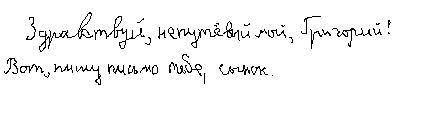 Здравствуй, непутёвый мой, Григорий!
Вот, пишу письмо тебе, сынок.